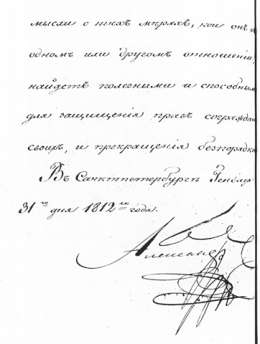 мысли о тѣхъ мѣрахъ, кои онъ въ
одномъ или другомъ отношеніи
найдетъ полезными и способными
для защищенія правъ согражданъ
своихъ, и прекращенія безпорядковъ
Въ Санктпетербургѣ Генваря
31го дня 1812го года.
Александръ